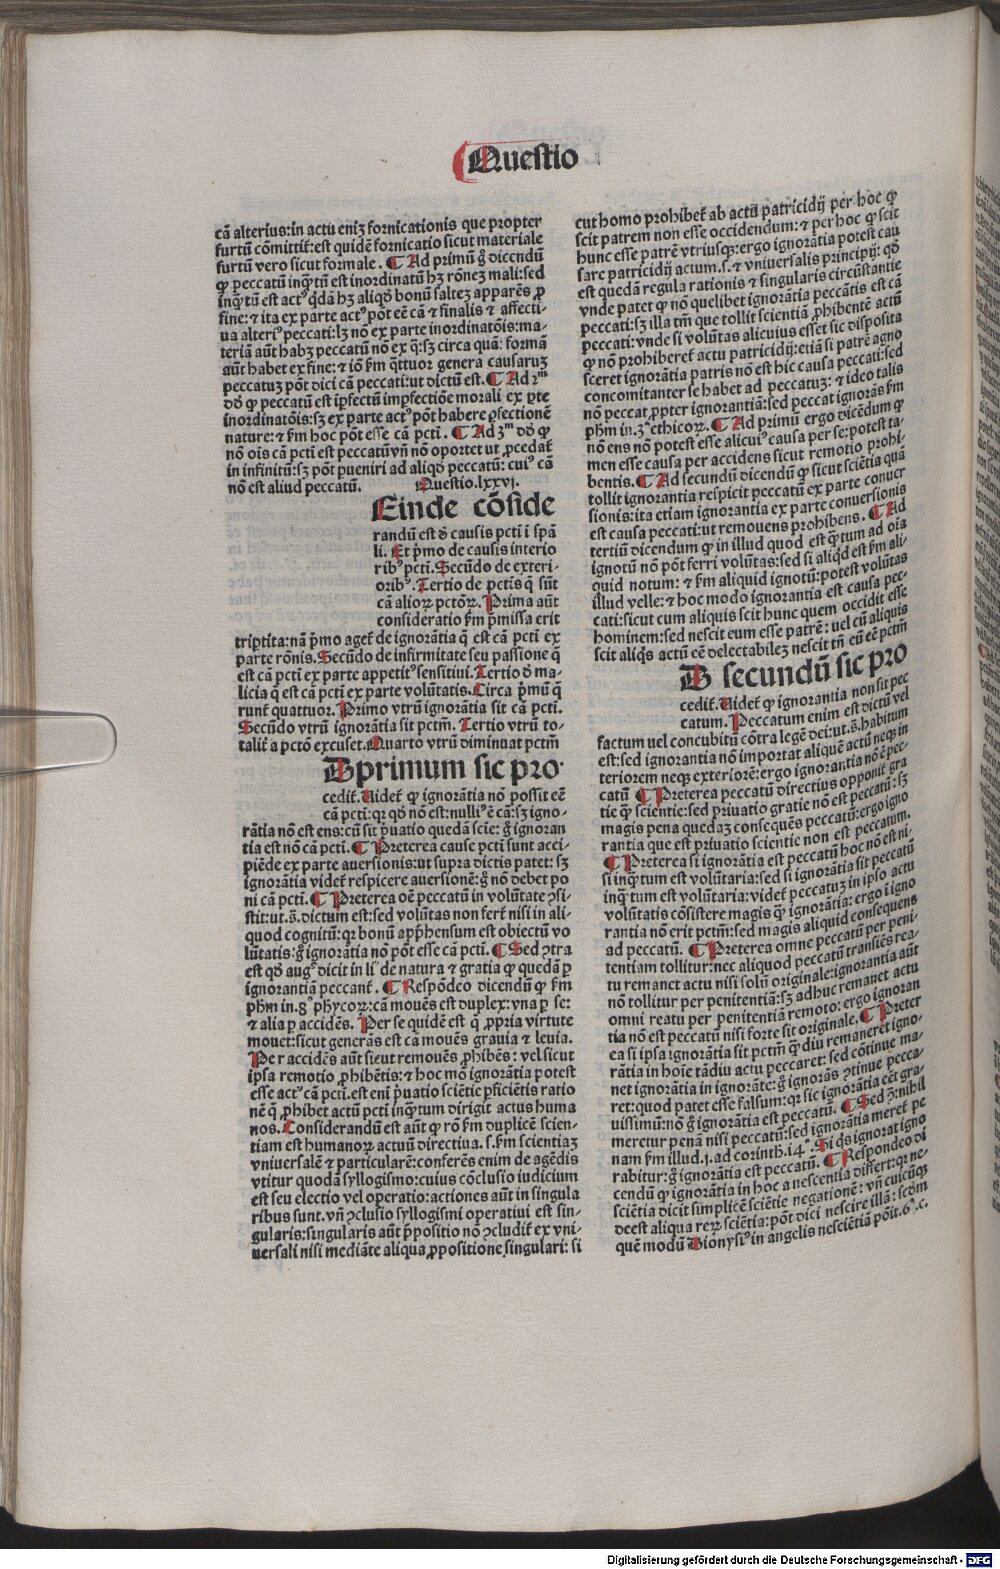 Questio
cā alterius:in actu eniꝫ fornicationis que propter
furtū cōmittit̄:est quidē fornicatio sicut materiale
furtū vero sicut formale. ¶ Ad primū g̊ dicendū
ꝙ peccatū inqꝫtū est inordinatū hꝫ rōneꝫ mali:sed
inqꝫtū est actꝰ q̄dā hꝫ aliqd̓ bonū salteꝫ apparēs ꝓ
fine:⁊ ita ex parte actꝰ pōt eē cā ⁊ finalis ⁊ affecti-
ua alteriꝰ peccati:lꝫ nō ex parte inordinatōis:ma-
teriā aūt habꝫ peccatū nō ex q̄:sꝫ circa quā: formā
aūt habet ex fine:⁊ iō fm̄ q̄ttuor genera causaruꝫ
peccatuꝫ pōt dici cā peccati:ut dictū est. ¶ Ad 2ᵐ
dd̓ ꝙ peccatū est īꝑfectū imꝑfectiōe morali ex ꝑte
inordinatōis:sꝫ ex parte actꝰ pōt habere ꝑfectionē
nature:⁊ fm̄ hoc pōt esse cā pcti. ¶ Ad 3ᵐ dd̓ ꝙ
nō oīs cā pcti est peccatū:vn̄ nō oportet ut ꝓcedat̄
in infinitū:sꝫ pōt ꝑueniri ad aliqd̓ peccatū: cuiꝰ cā
nō est aliud peccatū. Questio.lxxvj.
Einde cōside
randū est d̓ causis pcti ī spā
li. Et p̄mo de causis interio
ribꝰ pcti. Secūdo de exteri-
oribꝰ. Tertio de pctis q̄ sūt
cā alioꝝ pctōꝝ. Prima aūt
consideratio fm̄ p̄missa erit
triptita:nā p̄mo aget̄ de ignorātia q̄ est cā pcti ex
parte rōnis. Secūdo de infirmitate seu passione q̄
est cā pcti ex parte appetitꝰ sensitiui. Tertio d̓ ma-
licia q̄ est cā pcti ex parte volūtatis. Circa p̄mū q̄
runt̄ quattuor. Primo vtrū ignorātia sit cā pcti.
Secūdo vtrū ignorātia sit pctm̄. Tertio vtrū to-
talit̄ a pctō excuset. Quarto vtrū diminuat pctm̄
D primum sic pro-
cedit̄. Videt̄ ꝙ ignorātia nō possit eē
cā pcti:qꝛ qd̓ nō est:nulliꝰ ē cā:sꝫ igno-
rātia nō est ens:cū sit p̄uatio quedā scīe: g̊ ignoran
tia est nō cā pcti. ¶ Preterea cause pcti sunt acci-
piēde ex parte auersionis:ut supra dictis patet: sꝫ
ignorātia videt̄ respicere auersionē:g̊ nō debet po
ni cā pcti. ¶ Preterea oē peccatū in volūtate ꝯsi-
stit:ut.s̄. dictum est:sed volūtas non fert̄ nisi in ali-
quod cognitū:qꝛ bonū app̄hensum est obiectū vo
lūtatis:g̊ ignorātia nō pōt esse cā pcti. ¶ Sed ꝯtra
est qd̓ augꝰ dicit in li° de natura ⁊ gratia ꝙ quedā ꝑ
ignorantiā peccant̄. ¶ Respōdeo dicendū ꝙ fm̄
phm̄ in.8° phycoꝝ:cā mouēs est duplex:vna ꝑ se:
⁊ alia ꝑ accidēs. Per se quidē est q̄ ꝓpria virtute
mouet:sicut generās est cā mouēs grauia ⁊ leuia.
Per accidēs aūt sicut remouēs ꝓhibēs: vel sicut
ipsa remotio ꝓhibētis:⁊ hoc mō ignorātia potest
esse actꝰ cā pcti.est eni p̄uatio sciētie ꝑficiētis ratio
nē q̄ ꝓhibet actū pcti inqꝫtum dirigit actus huma
nos. Considerandū est aūt ꝙ rō fm̄ duplicē scien-
tiam est humanoꝝ actuū directiua.s.fm̄ scientiaꝫ
vniuersalē ⁊ particularē:conferēs enim de agēdis
vtitur quodā syllogismo:cuius cōclusio iudicium
est seu electio vel operatio:actiones aūt in singula
ribus sunt.vn̄ ꝯclusio syllogismi operatiui est sin-
gularis:singularis aūt p̄positio nō ꝯcludit̄ ex vni-
uersali nisi mediāte aliqua ꝓpositione singulari: si
cut homo prohibet̄ ab actū patricidij per hoc ꝙ
scit patrem non esse occidendum:⁊ per hoc ꝙ scit
hunc esse patrē vtriusqꝫ:ergo ignorātia potest cau
sare patricidij actum.s.⁊ vniuersalis principij: qd̓
est quedā regula rationis ⁊ singularis circūstantie
vnde patet ꝙ nō quelibet ignorātia peccātis est cā
peccati:sꝫ illa tm̄ que tollit scientiā ꝓhibentē actū
peccati:vnde si volūtas alicuius esset sic disposita
ꝙ nō prohiberet̄ actu patricidij:etiā si patrē agno
sceret ignorātia patris nō est hic causa peccati:sed
concomitanter se habet ad peccatuꝫ: ⁊ ideo talis
nō peccat ꝓpter ignorantiā:sed peccat ignorās fm̄
phm̄ in.3° ethicoꝝ. ¶ Ad primū ergo dicēdum ꝙ
nō ens nō potest esse alicuiꝰ causa per se:potest ta-
men esse causa per accidens sicut remotio prohi-
bentis. ¶ Ad secundū dicendū ꝙ sicut sciētia quā
tollit ignorantia respicit peccatū ex parte conuer
sionis:ita etiam ignorantia ex parte conuersionis
est causa peccati:ut remouens prohibens. ¶ Ad
tertiū dicendum ꝙ in illud quod est qꝫtum ad oīa
ignotū nō pōt ferri volūtas:sed si aliqd̓ est fm̄ ali-
quid notum: ⁊ fm̄ aliquid ignotū:potest volūtas
illud velle:⁊ hoc modo ignorantia est causa pec-
cati:sicut cum aliquis scit hunc quem occidit esse
hominem:sed nescit eum esse patrē: uel cū aliquis
scit aliq̄s actū eē delectabileꝫ nescit tn̄ eū eē pctm̄
D secundū sic pro
cedit̄. Videt̄ ꝙ ignorantia non sit pec
catum. Peccatum enim est dictū vel
factum uel concubitū cōtra legē dei:ut.s̄.habitum
est:sed ignorantia nō importat aliquē actū neqꝫ in
teriorem neqꝫ exteriorē:ergo ignorantia nō ē pec-
catū ¶ Preterea peccatū directius opponit̄ gra
tie ꝙ scientie:sed priuatio gratie nō est peccatū: sꝫ
magis pena quedaꝫ consequēs peccatū:ergo igno
rantia que est priuatio scientie non est peccatum.
¶ Preterea si ignorātia est peccatū hoc nō est ni-
si inqꝫtum est voluntaria:sed si ignorātia sit peccatū
inqꝫtum est voluntaria:videt̄ peccatuꝫ in ipso actu
volūtatis cōsistere magis ꝙ ignorātia: ergo ī igno
rantia nō erit pctm̄:sed magis aliquid consequens
ad peccatū. ¶ Preterea omne peccatū per peni
tentiam tollitur:nec aliquod peccatū transiēs rea-
tu remanet actu nisi solū originale:ignorantia aūt
nō tollitur per penitentiā:sꝫ adhuc remanet actu
omni reatu per penitentiā remoto: ergo ignoran
tia nō est peccatū nisi forte sit originale. ¶ Preter
ea si ipsa ignorātia sit pctm̄ qꝫdiu remaneret igno-
rātia in hoīe tādiu actu peccaret: sed cōtinue ma-
net ignorātia in ignorāte:g̊ ignorās ꝯtinue pecca-
ret:quod patet esse falsum:qꝛ sic ignorātia eēt gra-
uissimū:nō g̊ ignorātia est peccatū. ¶ Sed ꝯ:nihil
meretur penā nisi peccatū:sed ignorātia meret̄ pe
nam fm̄ illud.j.ad corinth.i4°. Si q̄s ignorat igno
rabitur:g̊ ignorātia est peccatū. ¶ Respondeo di
cendū ꝙ ignorātia in hoc a nescientia differt:qꝛ ne-
sciētia dicit simplicē sciētie negationē: vn̄ cuicūqꝫ
deest aliqua reꝝ sciētia:pōt dici nescire illā: scdm
quē modū Dionysiꝰ in angelis nesciētiā pōit.6°.c.
Digitalisierung gefördert durch die Deutsche Forschungsgemeinschaft - DFG